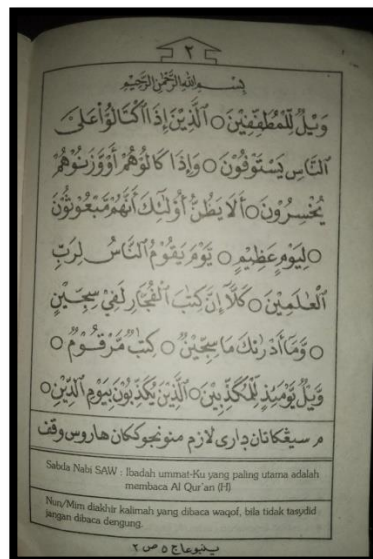 ٢
بِسْمِ اللهِ الرَّحْمٰنِ الرَّحِيْمِ
وَيْلٌ لِّلْمُطَفِّفِيْنَ ○ الَّذِيْنَ إِذَا اكْتَالُوْا عَلَى
النَّاسِ يَسْتَوْفُوْنَ ○ وَإِذَا كَالُوْهُمْ أَوْ وَّزَنُوْهُمْ
يُخْسِرُوْنَ ○ أَلَا يَظُنُّ أُولٰئِكَ أَنَّهُمْ مَّبْعُوْثُوْنَ
○ لِيَوْمٍ عَظِيْمٍ ○ يَوْمَ يَقُوْمُ النَّاسُ لِرَبِّ
الْعٰلَمِيْنَ ○ كَلَّا إِنَّ كِتٰبَ الْفُجَّارِ لَفِيْ سِجِّيْنٍ
○ وَمَا أَدْرٰىكَ مَا سِجِّيْنٌ ○ كِتٰبٌ مَّرْقُوْمٌ ○
وَيْلٌ يَوْمَئِذٍ لِّلْمُكَذِّبِيْنَ ○ الَّذِيْنَ يُكَذِّبُوْنَ بِيَوْمِ الدِّيْنِ ○
م سيڠكاتن داري لازم منونجوككان هاروس وقف
Sabda Nabi SAW : Ibadah ummat-Ku yang paling utama adalah
membaca Al Qur'an (H)
Nun/Mim diakhir kalimah yang dibaca waqof, bila tidak tasydid
jangan dibaca dengung.
ج ٥ ص ٢